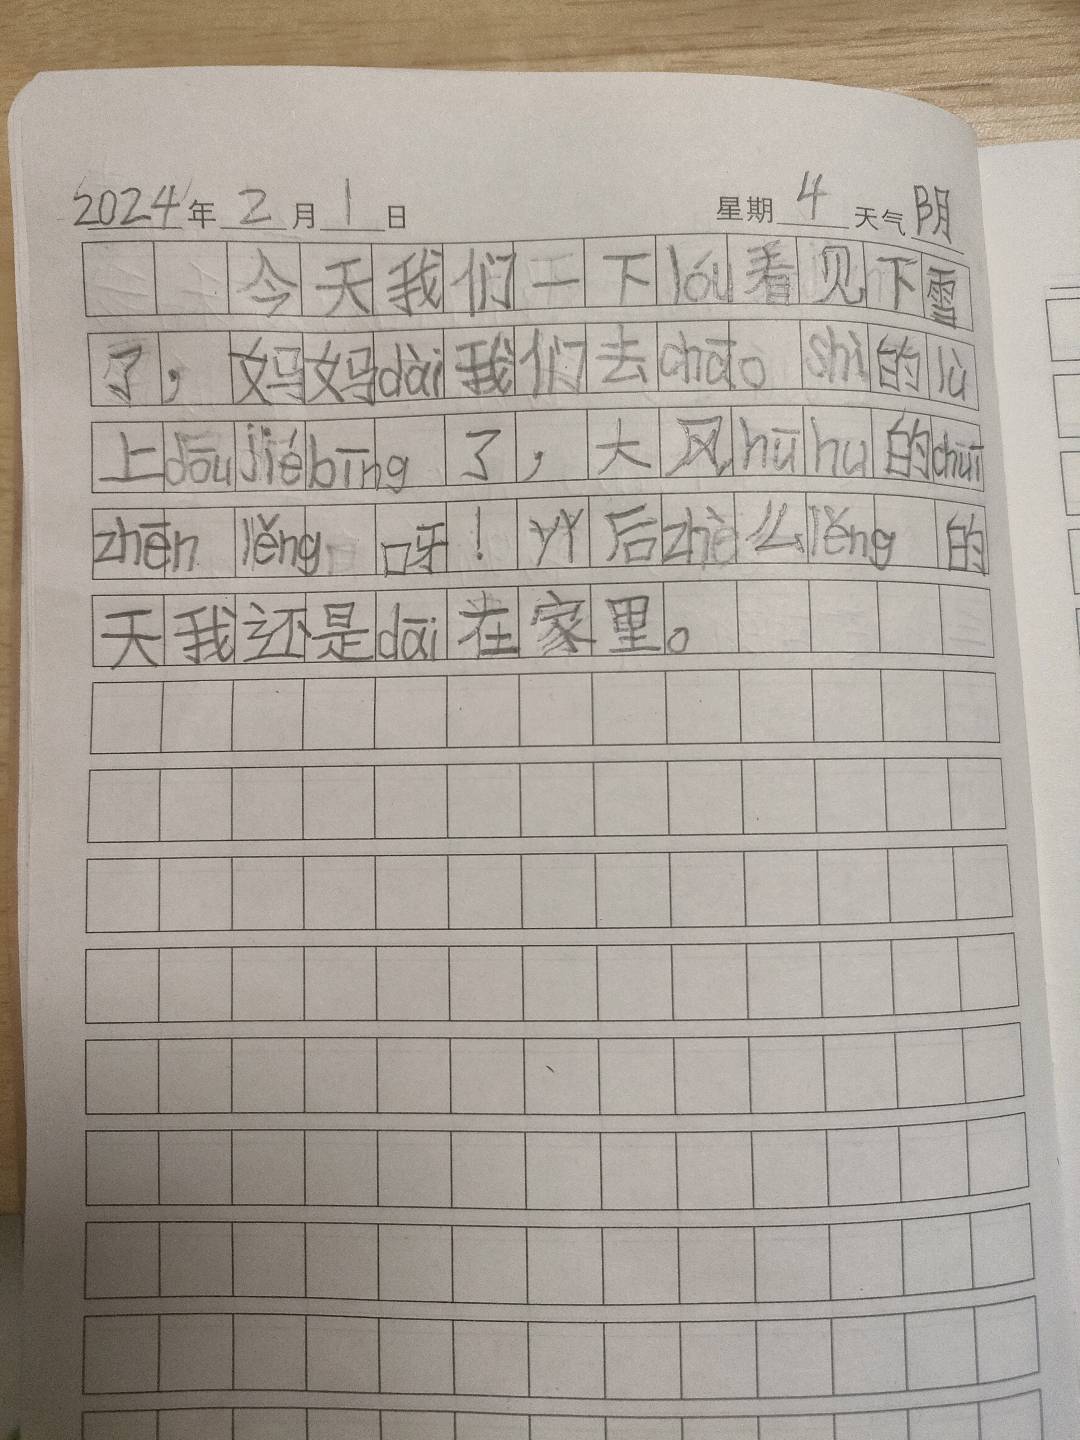 2024年2月1日 星期4 天气阴
今天我们一下lóu看见下雪
了，妈妈dài我们去chāo shì的lù
上dōu jié bīng了，大风hū hu的chuī
zhēn lěng呀！以后zhè么lěng的
天我还是dāi在家里。